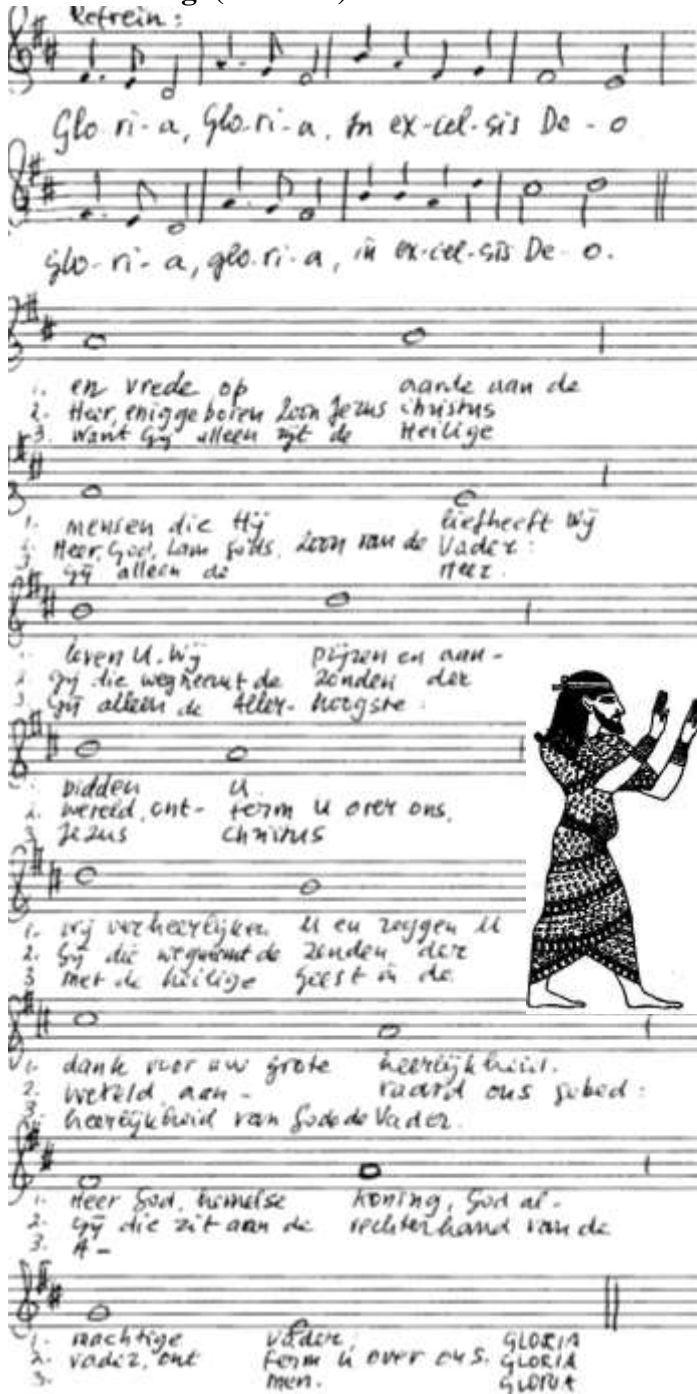 Refrein:
Glo-ri-a, Glo-ri-a, In ex-cel-sis De-o
Glo-ri-a, glo-ri-a, in ex-cel-sis De-o.
1. en vrede op aarde aan de
2. Heer, eniggeboren Zoon Jezus Christus
3. Want Gij alleen zijt de Heilige
1. mensen die Hij liefheeft Wij
2. Heer, God, Lam Gods, Zoon van de Vader:
3. Gij alleen de Heer.
1. loven U. Wij prijzen en aan-
2. Gij die wegneemt de zonden der
3. Gij alleen de Aller-hoogste:
1. bidden U.
2. wereld, ont-ferm U over ons,
3. Jezus Christus
1. wij verheerlijken U en zeggen U
2. Gij die wegneemt de zonden der
3. met de heilige Geest in de
1. dank voor uw grote heerlijkheid.
2. wereld, aan-vaard ons gebed:
3. heerlijkheid van God de Vader.
1. Heer God, hemelse Koning, God al-
2. Gij die zit aan de rechterhand van de
3. A-
1. machtige Vader. GLORIA
2. vader, ont ferm U over ons. GLORIA
3. men. GLORIA